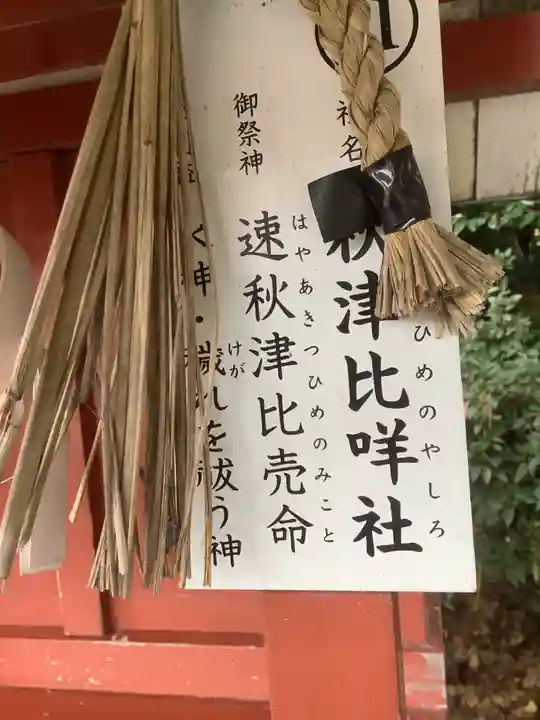 社名
秋津比咩社
ひめのやしろ
御祭神
速秋津比売命
はやあきつひめのみこと
く神・
穢れを祓う神
けが